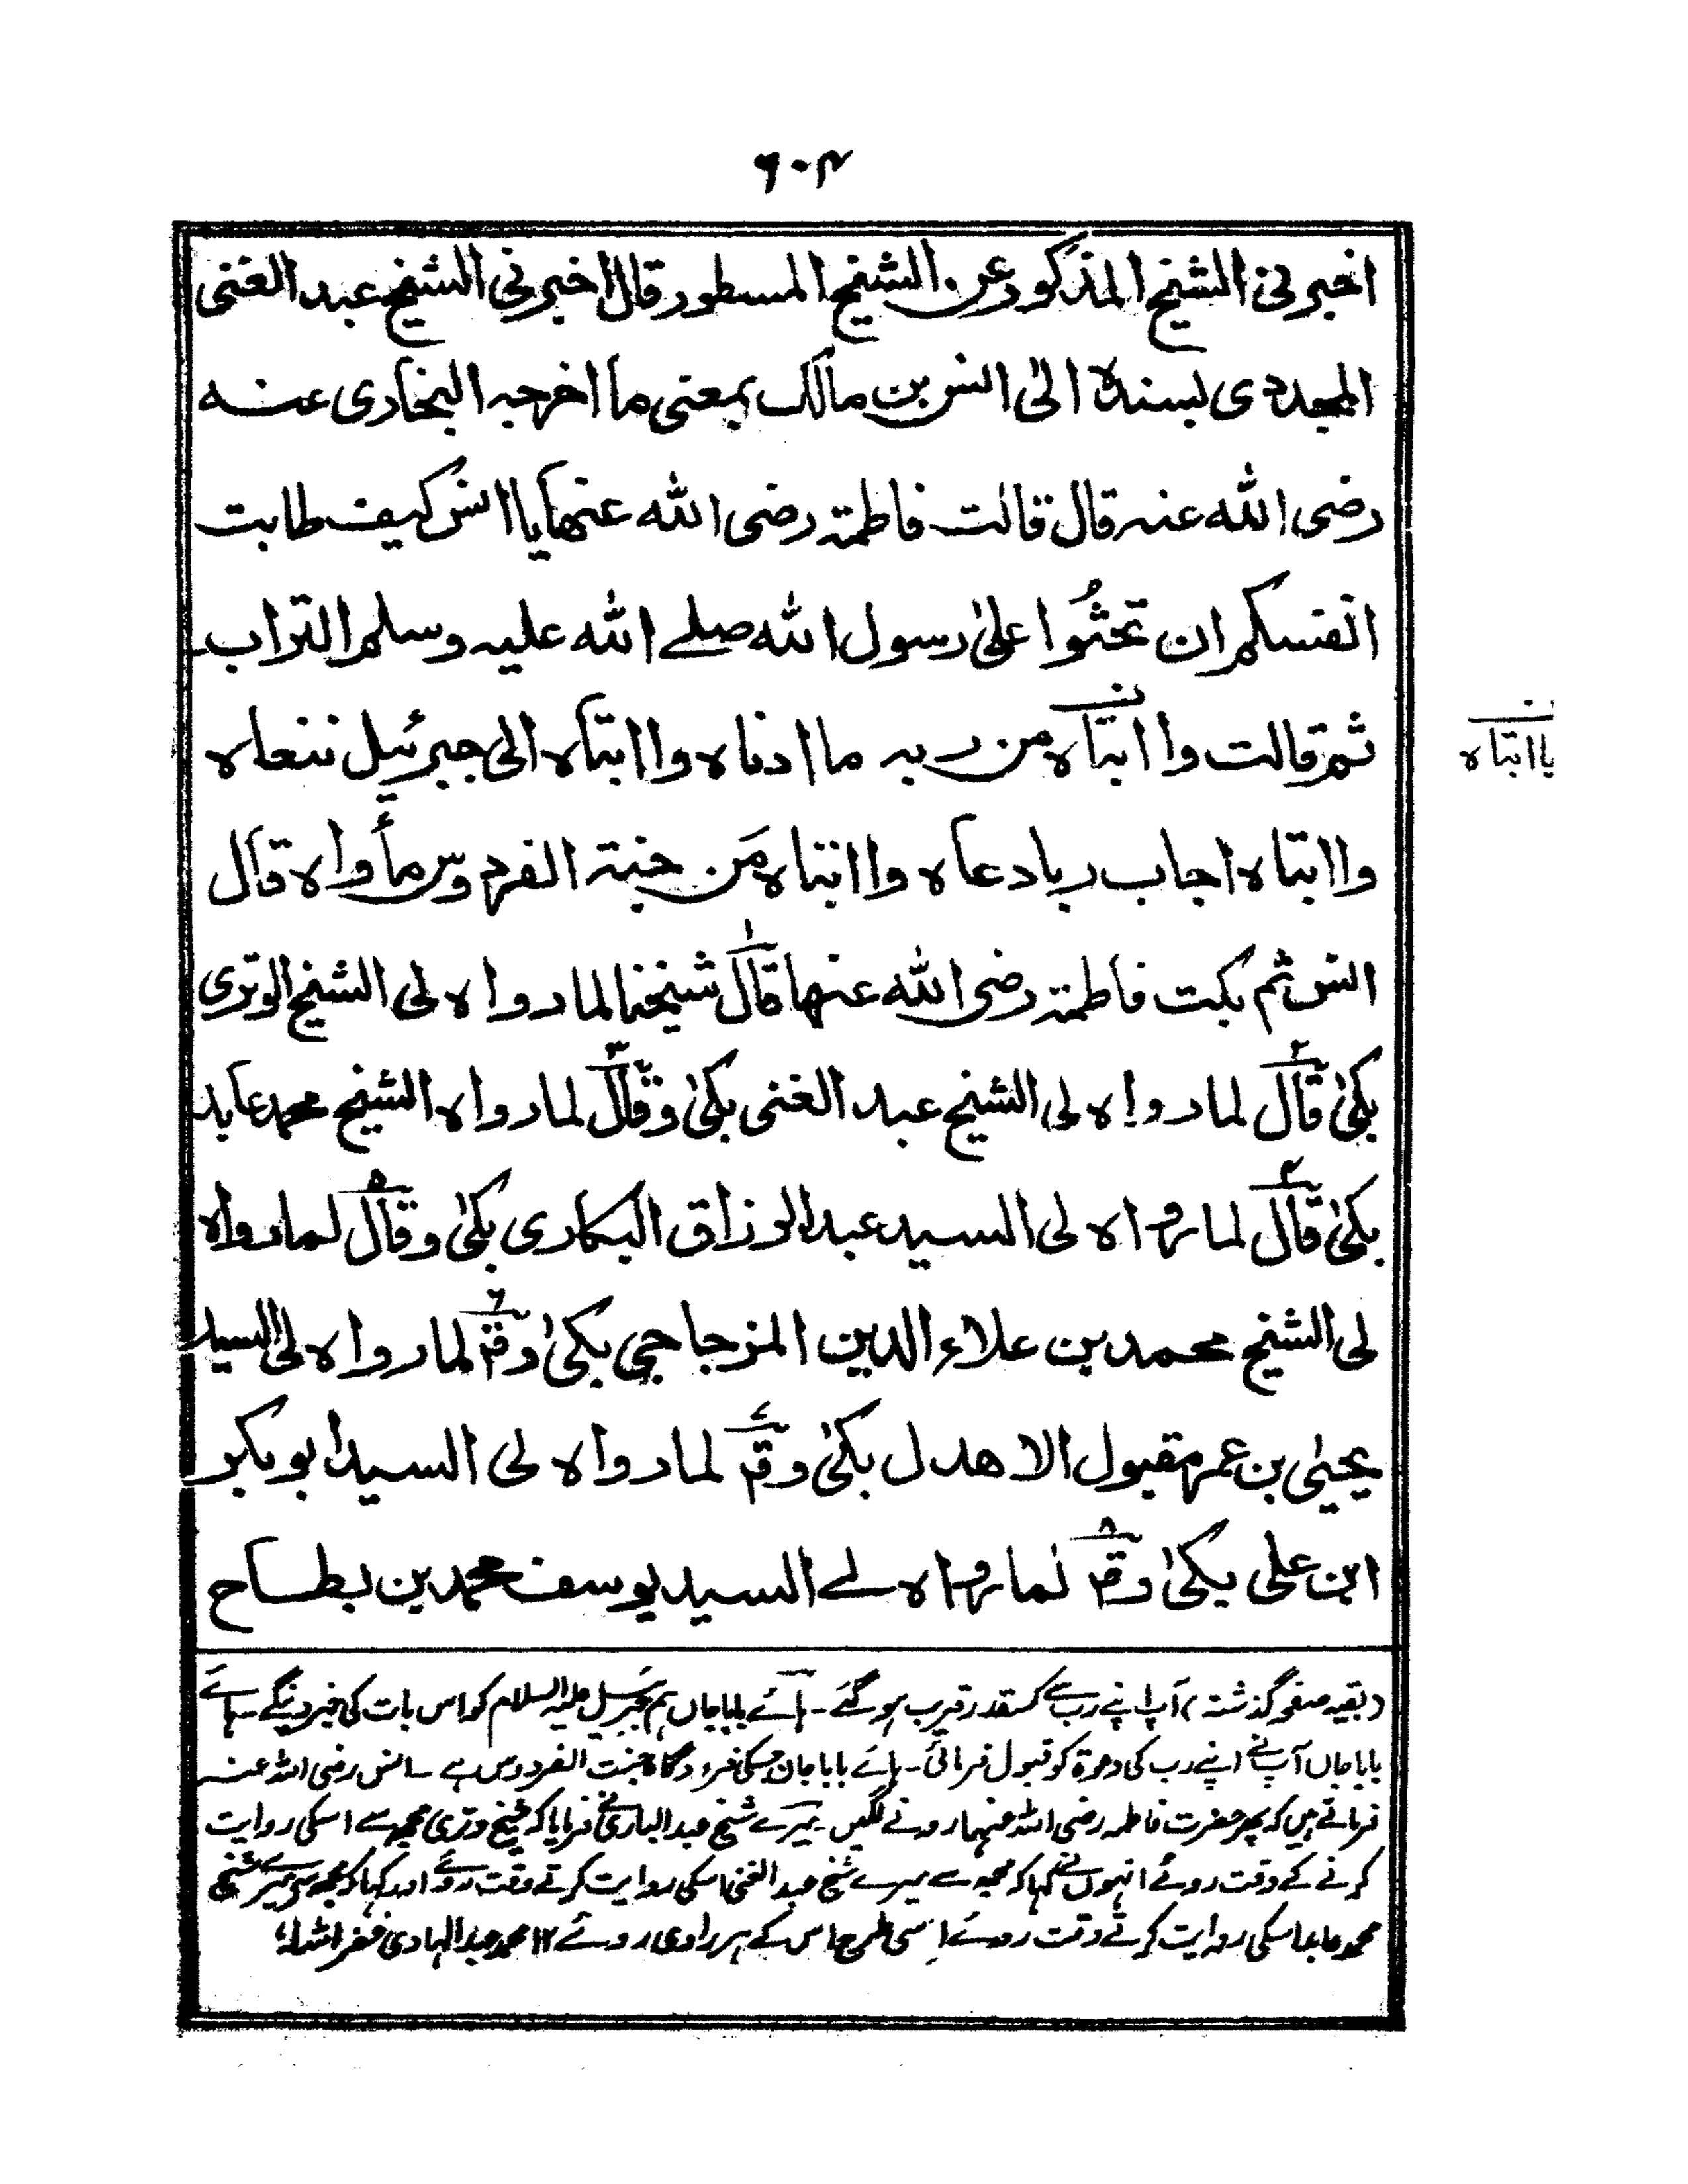 ۶۰۴
اخبرنی الشیخ المذکور عن الشیخ المسطور قال اخبرنی الشیخ عبد الغنی
المجددی بسندہ الی انس بن مالک بمعنی ما اخرجہ البخاری عنہ
رضی اللہ عنہ قال قالت فاطمۃ رضی اللہ عنھا یا انس کیف طابت
انفسکم ان تحثُوا علیٰ رسول اللہ صلے اللہ علیہ وسلم التراب
ثم قالت وا ابتاہ من ربہ ما ادناہ وا ابتاہ الی جبرئیل ننعاہ
یا ابتاہ
وا ابتاہ اجاب ربا دعاہ وا ابتاہ مَن جنۃ الفردوس مأواہ قال
انس ثم بکت فاطمۃ رضی اللہ عنھا قال شیخنا لما رواہ لی الشیخ الوتری
بکیٰ قال لما رواہ لی الشیخ عبد الغنی بکیٰ وقال لما رواہ الشیخ محمد عابد
بکیٰ قال لما رواہ لی السید عبد الرزاق البکاری بکیٰ وقال لما رواہ
لی الشیخ محمد بن علاء الدین المزجاجی بکیٰ وقم لما رواہ لی السید
یحییٰ بن عمر مقبول الاھدل بکیٰ وقم لما رواہ لی السید ابو بکر
ابن علی بکیٰ وقم لما رواہ لے السید یوسف محمد بن بطاح
(بقیہ صفحہ گذشتہ) آپ اپنے رب سے کسقدر قریب ہو گئے۔ ہائے بابا جاں ہم جبرئیل علیہ السلام کو اس بات کی خبر دینگے۔ ہائے
بابا جاں آپ نے اپنے رب کی دعوۃ کو قبول فرمائی۔ ہائے بابا جان جسکی فرودگاہ جنت الفردوس ہے۔ انس رضی اللہ عنہ
فرماتے ہیں کہ پھر حضرت فاطمہ رضی اللہ عنہا رونے لگیں۔ میرے شیخ عبد الباری نے فرمایا کہ شیخ وتری مجھ سے اسکی روایت
کرنے کے وقت روئے انہوں نے کہا کہ مجھ سے میرے شیخ عبد الغنی اسکی روایت کرتے وقت روئے اور کہا کہ مجھ سے میرے شیخ
محمد عابد اسکی روایت کرتے وقت روئے اسی طرح اس کے ہر راوی روئے ۱۲ محمد عبد الہادی غفر اللہ لہ؛